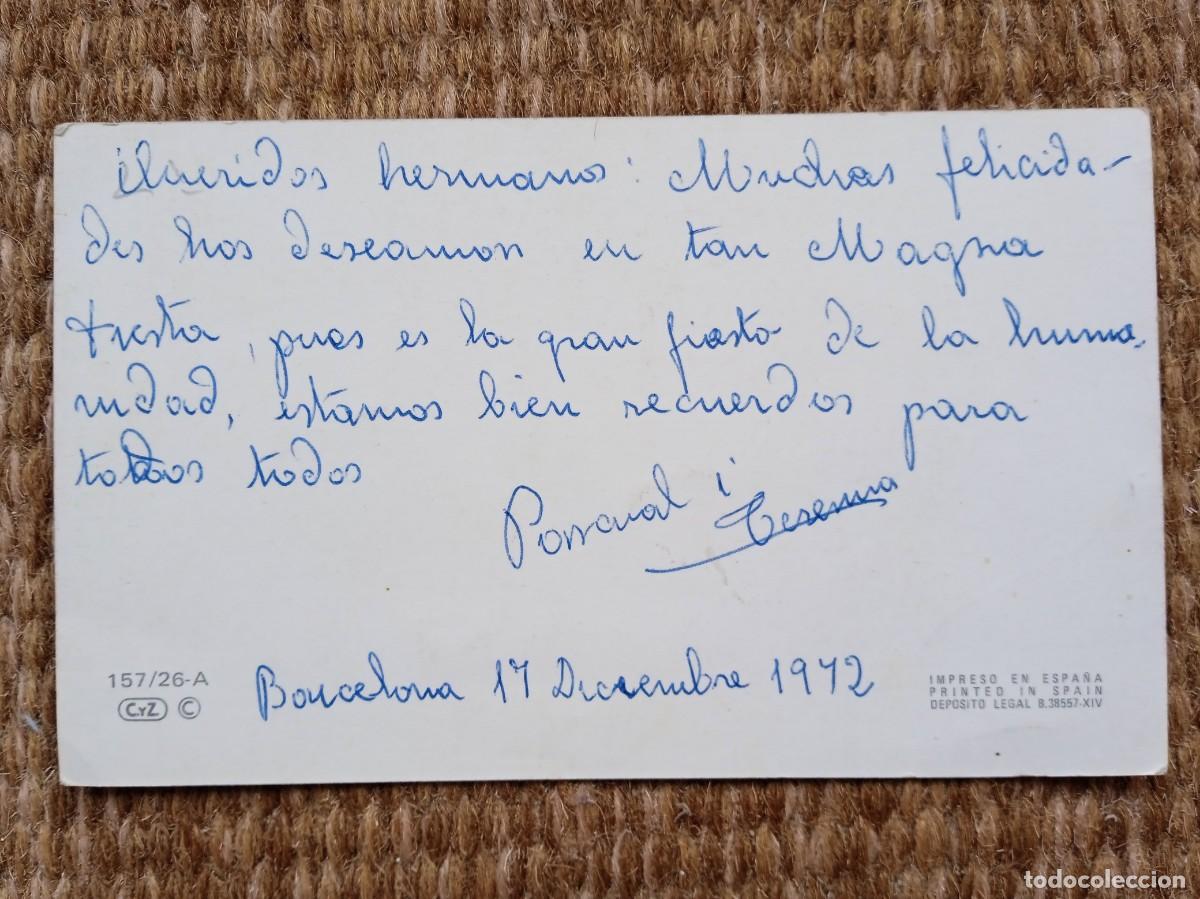 Queridos hermanos: Muchas felicida-
des hos deseamos en tan Magna
fiesta, pues es la gran fiesta de la huma-
nidad, estamos bien recuerdos para
todos todos
Pascual i
Teresa
Barcelona 17 Diciembre 1972
157/26-A
CYZ ©
IMPRESO EN ESPAÑA
PRINTED IN SPAIN
DEPOSITO LEGAL B.38557-XIV
todocoleccion